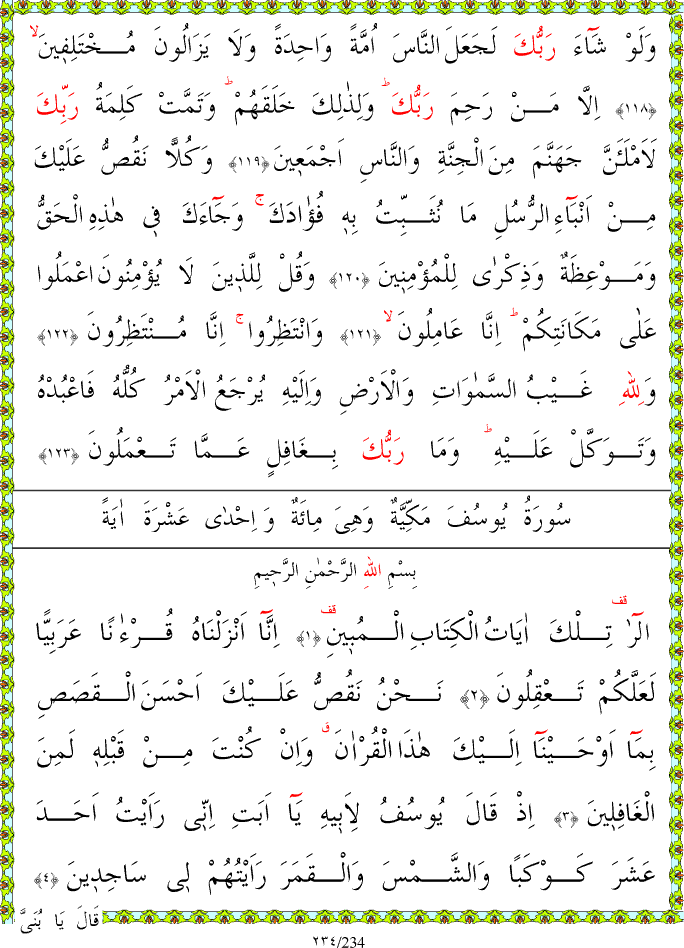 وَلَوْ شَٓاءَ رَبُّكَ لَجَعَلَ النَّاسَ اُمَّةً وَاحِدَةً وَلَا يَزَالُونَ مُخْتَلِفٖينَۙ
﴿١١٨﴾ اِلَّا مَنْ رَحِمَ رَبُّكَؕ وَلِذٰلِكَ خَلَقَهُمْؕ وَتَمَّتْ كَلِمَةُ رَبِّكَ
لَاَمْلَـَٔنَّ جَهَنَّمَ مِنَ الْجِنَّةِ وَالنَّاسِ اَجْمَعٖينَ ﴿١١٩﴾ وَكُلًّا نَقُصُّ عَلَيْكَ
مِنْ اَنْبَٓاءِ الرُّسُلِ مَا نُثَبِّتُ بِهٖ فُؤٰادَكَۚ وَجَٓاءَكَ فٖى هٰذِهِ الْحَقُّ
وَمَوْعِظَةٌ وَذِكْرٰى لِلْمُؤْمِنٖينَ ﴿١٢٠﴾ وَقُلْ لِلَّذٖينَ لَا يُؤْمِنُونَ اعْمَلُوا
عَلٰى مَكَانَتِكُمْؕ اِنَّا عَامِلُونَۙ ﴿١٢١﴾ وَانْتَظِرُواۚ اِنَّا مُنْتَظِرُونَ ﴿١٢٢﴾
وَلِلّٰهِ غَيْبُ السَّمٰوَاتِ وَالْاَرْضِ وَاِلَيْهِ يُرْجَعُ الْاَمْرُ كُلُّهُ فَاعْبُدْهُ
وَتَوَكَّلْ عَلَيْهِؕ وَمَا رَبُّكَ بِغَافِلٍ عَمَّا تَعْمَلُونَ ﴿١٢٣﴾
سُورَةُ يُوسُفَ مَكِّيَّةٌ وَهِىَ مِائَةٌ وَاِحْدٰى عَشْرَةَ اٰيَةً
بِسْمِ اللّٰهِ الرَّحْمٰنِ الرَّحٖيمِ
الٓرٰࣞ تِلْكَ اٰيَاتُ الْكِتَابِ الْمُبٖينِࣞ ﴿١﴾ اِنَّٓا اَنْزَلْنَاهُ قُرْءٰنًا عَرَبِيًّا
لَعَلَّكُمْ تَعْقِلُونَ ﴿٢﴾ نَحْنُ نَقُصُّ عَلَيْكَ اَحْسَنَ الْقَصَصِ
بِمَٓا اَوْحَيْنَٓا اِلَيْكَ هٰذَا الْقُرْاٰنَࣗ وَاِنْ كُنْتَ مِنْ قَبْلِهٖ لَمِنَ
الْغَافِلٖينَ ﴿٣﴾ اِذْ قَالَ يُوسُفُ لِاَبٖيهِ يَٓا اَبَتِ اِنّٖى رَاَيْتُ اَحَدَ
عَشَرَ كَوْكَبًا وَالشَّمْسَ وَالْقَمَرَ رَاَيْتُهُمْ لٖى سَاجِدٖينَ ﴿٤﴾
قَالَ يَا بُنَىَّ
٢٣٤/234